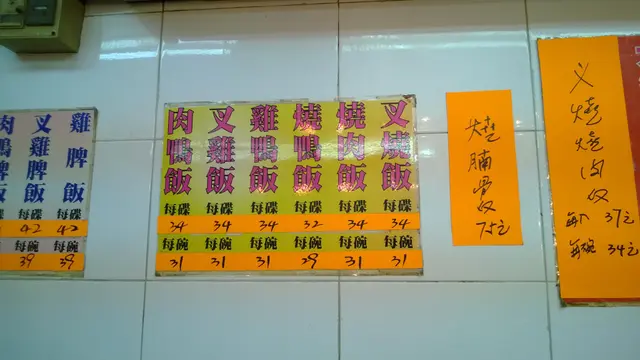 肉鴨飯
叉雞脾飯
雞脾飯
每碟 每碟
42 42
每碗 每碗
39 39
肉鴨飯 叉雞飯 雞鴨飯 燒鴨飯 燒肉飯 叉燒飯
每碟 每碟 每碟 每碟 每碟 每碟
34 34 34 32 34 34
每碗 每碗 每碗 每碗 每碗 每碗
31 31 31 29 31 31
燒腩骨反
75元
叉燒燒肉反
37元
每碗 34元